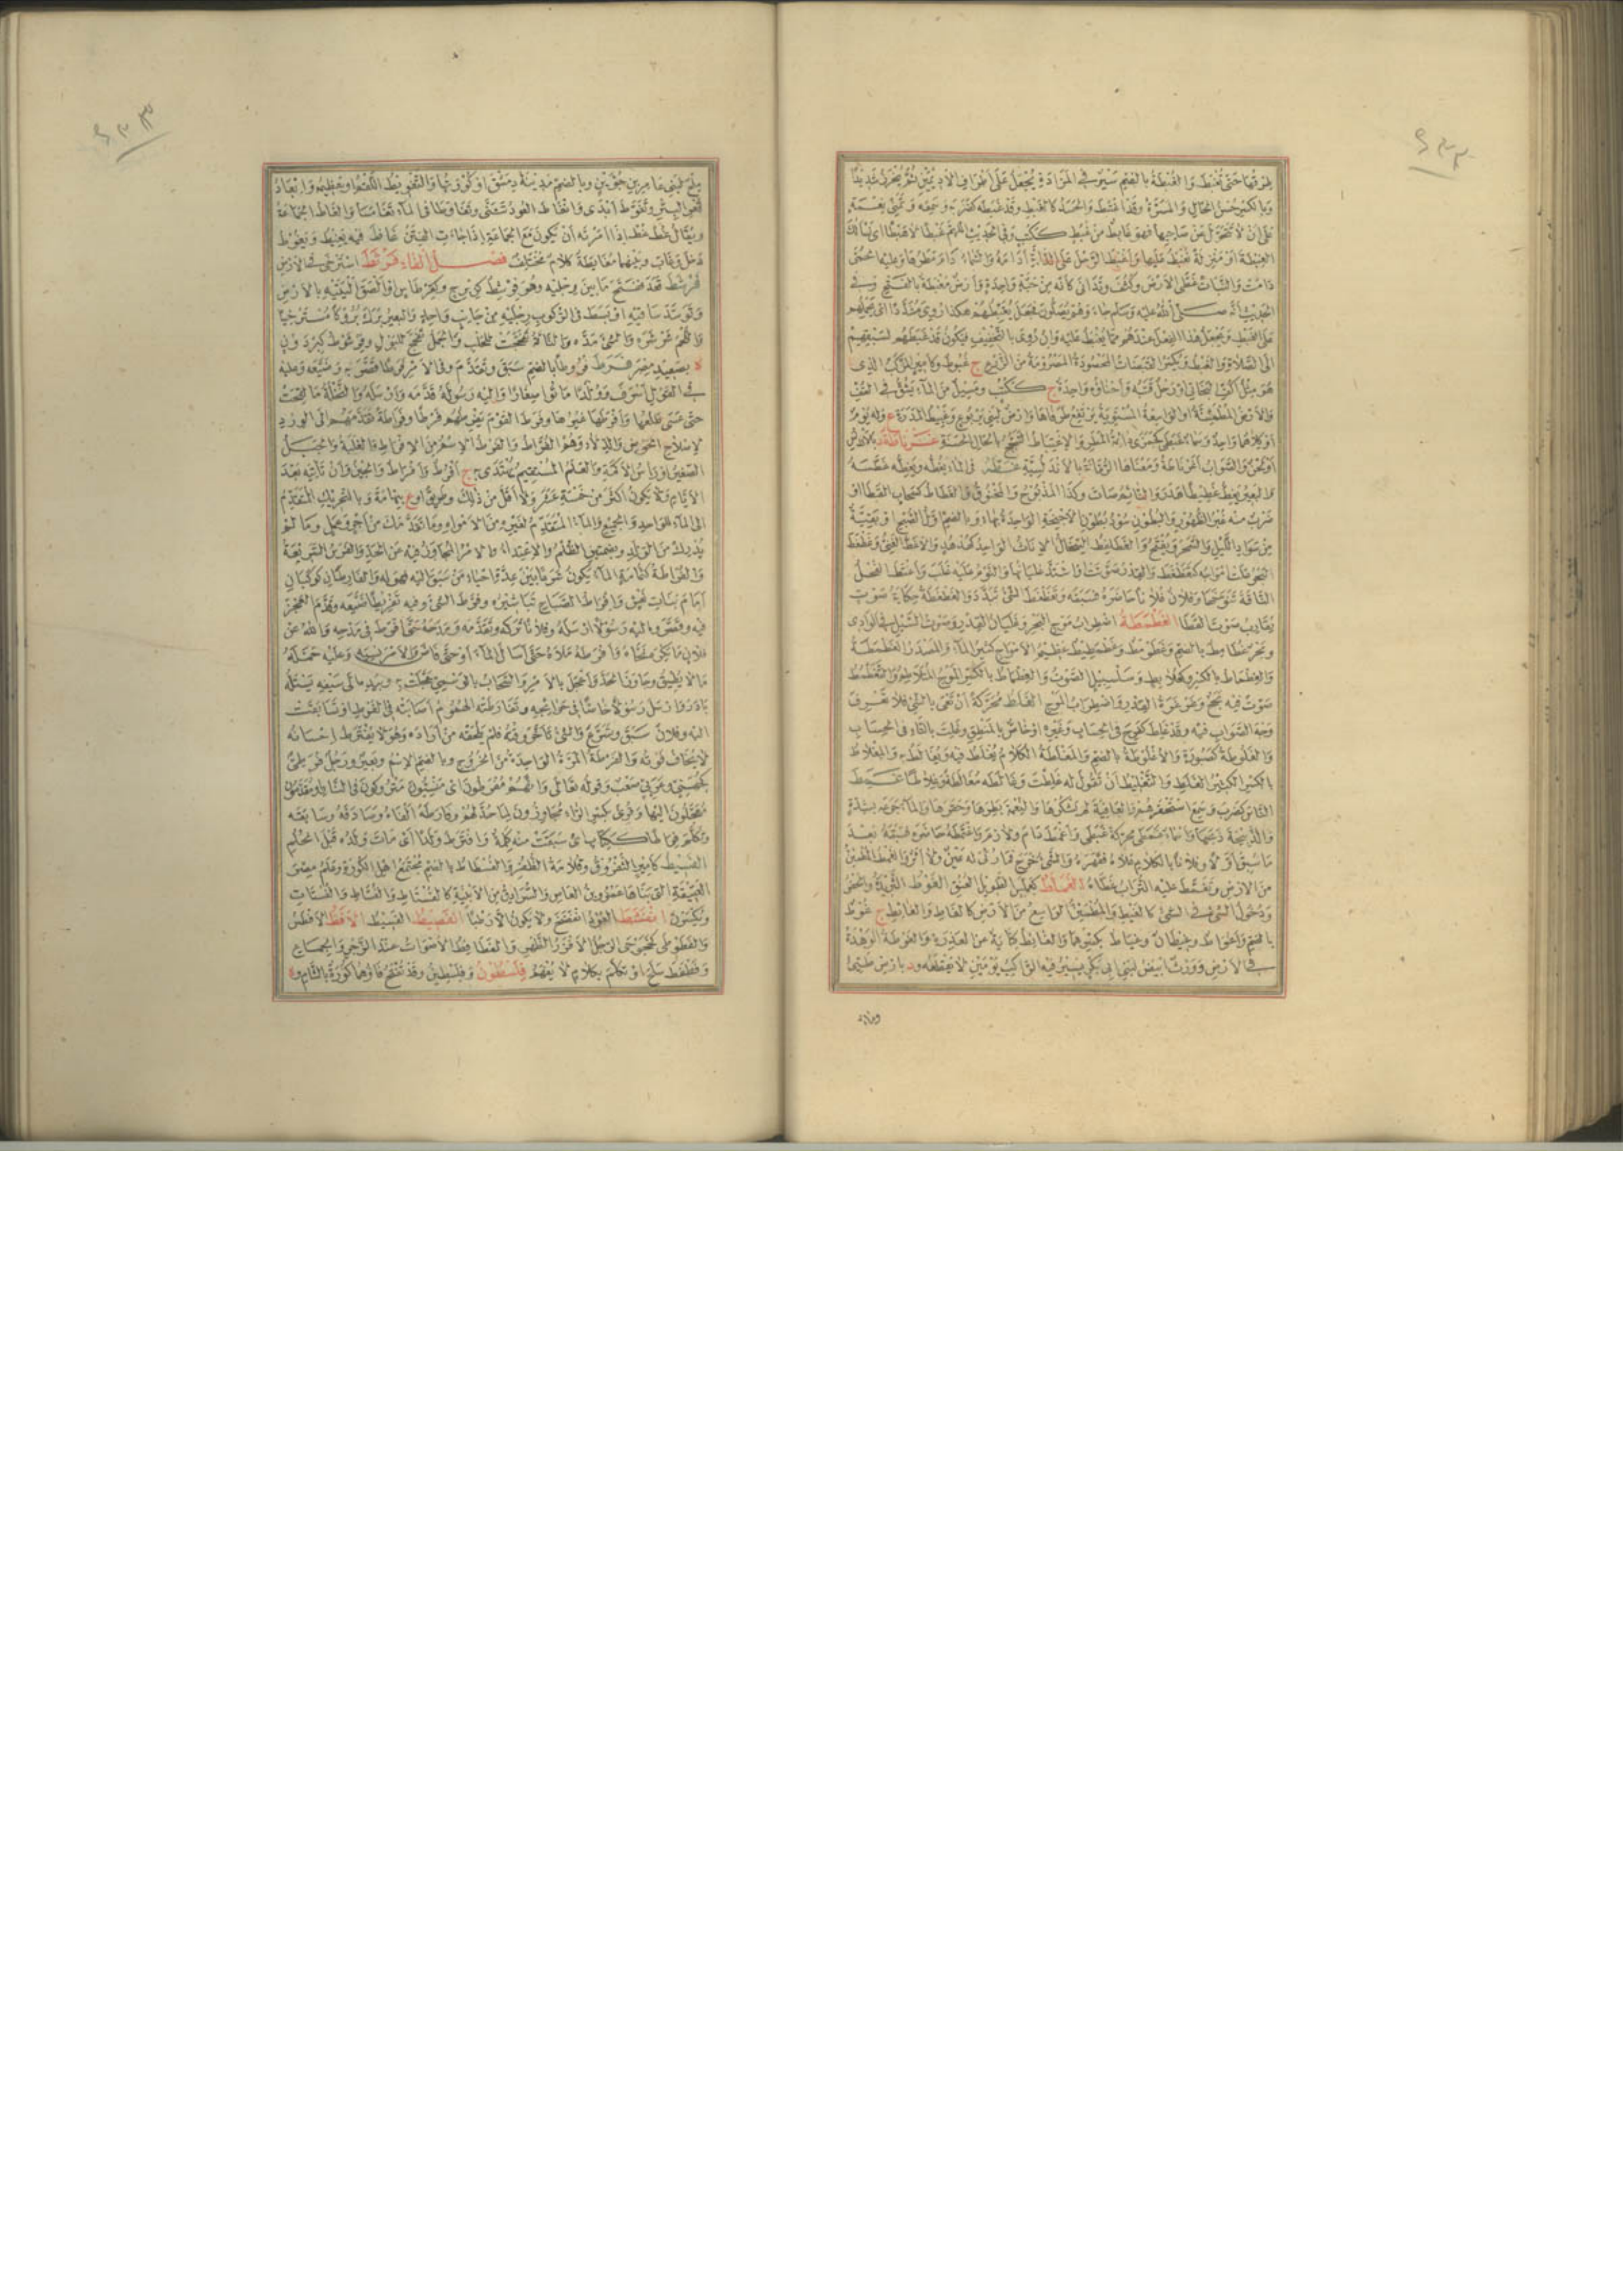 عروقها حتى تغبط والغبطة بالضم سير في المزادة يجعل على أطراف الأديمين ثم يخرز شديدا
وبالكسر حسن الحال والمسرة وقد اغتبط والحسد كالغبط وقد غبطه كضربه وسمعه وتمنى نعمة
على أن لا تتحول عن صاحبها فهو غابط من غبط ككتب وفي الحديث اللهم غبطا لا هبطا أي نسألك
الغبطة أو منزلة نغبط عليها وأغبط الرحل على الدابة أدامه والسماء دام مطرها وعليه الحمى
دامت والنبات غطى الأرض وكثف وتدانى كأنه من حبة واحدة وأرض مغبطة بالفتح وفي
الحديث أنه صلى الله عليه وسلم جاء وهم يصلون فجعل يغبطهم هكذا روي مشددا أي يحملهم
على الغبط ويجعل هذا الفعل عندهم مما يغبط عليه وإن روي بالتخفيف فيكون قد غبطهم لسبقهم
إلى الصلاة والغبط ويكسر القبضات المحصودة المصرومة من الزرع ج غبوط وكأمير المركب الذي
هو مثل أكف البخاتي أو رحل قتبه وأحناؤه واحدة ج ككتب ومسيل من الماء يشق في القف
والأرض المطمئنة أو الواسعة المستوية يرتفع طرفاها وأرض لبني يربوع وغبيط المدرة ع وله يوم
أو كلاهما واحد وسماء غبطى كجمزى دائمة المطر والاغتباط التبجح بالحال الحسنة غرناطة د بالأندلس
أو لحن والصواب أغرناطة ومعناها الرمانة بالأندلسية غطه في الماء يغطه ويغطه غطسه
والبعير يغط غطيطا هدر والنائم صات وكذا المذبوح والمخنوق والغطاط كسحاب القطا أو
ضرب منه غبر الظهور والبطون سود بطون الأجنحة الواحدة بهاء وبالضم أول الصبح أو بقية
من سواد الليل والسحر ويفتح والغطائط السخال الإناث الواحد كهدهد والأغط الغني وغطغط
البحر علت أمواجه كتغطغط والقدر صوتت أو اشتد غليانها والنوم عليه غلب واغتط الفحل
الناقة تنوخها وفلان فلانا حاضره فسبقه وتغطغط الشيء تبدد والغطغطة حكاية صوت
يقارب صوت القطا الغطمطة اضطراب موج البحر وغليان القدر وصوت السيل في الوادي
وبحر غطامط بالضم وغطومط وغطمطيط عظيم الأمواج كثير الماء والمصدر الغطمطة
والغطماط بالكسر وكعلابط وسلسبيل الصوت والغطماط بالكسر الموج المتلاطم والتغطمط
صوت فيه بحح وغرغرة القدر واضطراب الموج الغلط محركة أن تعيا بالشيء فلا تعرف
وجه الصواب فيه وقد غلط كفرح في الحساب وغيره أو خاص بالمنطق وغلت بالتاء في الحساب
والغلوطة كصبورة والأغلوطة بالضم والمغلطة الكلام يغلط فيه ويغالط به والمغلاط
الكثير الغلط والتغليط أن تقول له غلطت وغالطه مغالطة وغلاطا غمط
الناس كضرب وسمع استحقرهم والعافية لم يشكرها والنعمة بطرها وحقرها والماء جرعه بشدة
والذبيحة ذبحها وسماء غمطى محركة غبطى وأغمط دام ولازم واغتمطه حاضره فسبقه بعد
ما سبق أولا وفلانا بالكلام علاه فقهره والشيء خرج فما رئي له عين ولا أثر والغمط المطمئن
من الأرض وتغمط عليه التراب غطاه الغملط كعملس الطويل العنق الغوط الثريدة والحفر
ودخول الشيء في الشيء كالغيط والمطمئن الواسع من الأرض كالغاط والغائط ج غوط
بالضم وأغواط وغيطان وغياط بكسرهما والغائط كناية عن العذرة والغوطة الوهدة
في الأرض وبرث أبيض لبني أبي بكر يسير فيه الراكب يومين لا يقطعه ود بأرض طيئ
وماء
ملح لبني عامر بن جوين وبالضم مدينة دمشق أو كورتها والتغويط اللقم أو تعظيمه وإبعاد
قعر البئر وتغوط أبدى وانغاط العود تثنى وتغاوطا في الماء تغامسا والغاط الجماعة
ويقال غط غط إذا أمرته أن يكون مع الجماعة إذا جاءت الفتن غاط فيه يغيط ويغوط
دخل وغاب وبينهما مغايطة كلام مختلف فصل الفاء فرشط استرخى في الأرض
فرشط قعد ففتح ما بين رجليه وهو فرشط كزبرج وكقرطاس أو ألصق أليتيه بالأرض
وتوسد ساقيه أو بسط في الركوب رجليه من جانب واحد والبعير برك بروكا مسترخيا
واللحم شرشره والشيء مده والناقة تفحجت للحلب والجمل تفحج للبول وفرشوط كبرذون
د بصعيد مصر فرط فروطا بالضم سبق وتقدم وفي الأمر فرطا قصر به وضيعه وعليه
في القول أسرف وولدا ماتوا صغارا وإليه رسوله قدمه وأرسله والنخلة ما لقحت
حتى عسى طلعها وأفرطها غيرها وفرط القوم يفرطهم فرطا وفراطة تقدمهم إلى الورد
لإصلاح الحوض والدلاء وهم الفراط والفرط الاسم من الإفراط والغلبة والجبل
الصغير أو رأس الأكمة والعلم المستقيم يهتدى به ج أفرط وأفراط والحين وأن تأتيه بعد
الأيام ولا يكون أكثر من خمسة عشر ولا أقل من ثلاثة وطريق أو ع بتهامة وبالتحريك المتقدم
إلى الماء للواحد والجميع والماء المتقدم لغيره من الأمواه وما تقدمك من أجر وعمل وما لم
يدرك من الولد وبضمتين الظلم والاعتداء والأمر المجاوز فيه عن الحد والفرس السريعة
والفراطة كثمامة الماء يكون شرعا بين عدة أحياء من سبق إليه فهو له والفارطان كوكبان
أمام بنات نعش وأفراط الصباح تباشيره وفرط الشيء وفيه تفريطا ضيعه وقدم العجز
فيه وقصر وإليه رسولا أرسله وفلانا تركه وتقدمه ومدحه حتى أفرط في مدحه والله عن
فلان ما يكره نحاه وأفرطه ملأه حتى أسال الماء أو حتى فاض والأمر نسيه وعليه حمله
ما لا يطيق وجاوز الحد وأعجل بالأمر والسحاب بالوسمي عجلت به وبيده إلى سيفه ليستله
بادر وأرسل رسولا خاصا في حوائجه وتفارطته الهموم أصابته في الفرط أو تسابقت
إليه وفلان سبق وتسرع والشيء تأخر وقته فلم يلحقه من أراده وهو لا يفترط إحسانه
لا يخاف فوته والفرطة المرة الواحدة من الخروج وبالضم الاسم وبعير ورجل فرطي
كجهني وعربي صعب وقوله تعالى وأنهم مفرطون أي منسيون متروكون في النار أو مقدمون
معجلون إليها وقرئ بكسر الراء مجاوزون لما حد لهم وفارطه ألفاه وصادفه وسابقه
وتكلم فراطا ككتاب أي سبقت منه كلمة وافترط ولدا أي مات ولده قبل الحلم
الفسيط كأمير التفروق وقلامة الظفر والفسطاط بالضم مجتمع أهل الكورة وعلم مصر
العتيقة التي بناها عمرو بن العاص والسرادق من الأبنية كالفستاط والفساط والفستات
ويكسرن انفشط العود انفضخ ولا يكون إلا رطبا الفصيط الفسيط الأفط الأفطس
والفطوطى كخجوجى الرجل الأفزر الظهر والفطافط الأصوات عند الزجر والجماع
وفطفط سلح أو تكلم بكلام لا يفهم فلسطون وفلسطين وقد تفتح فاؤهما كورة بالشام و ة